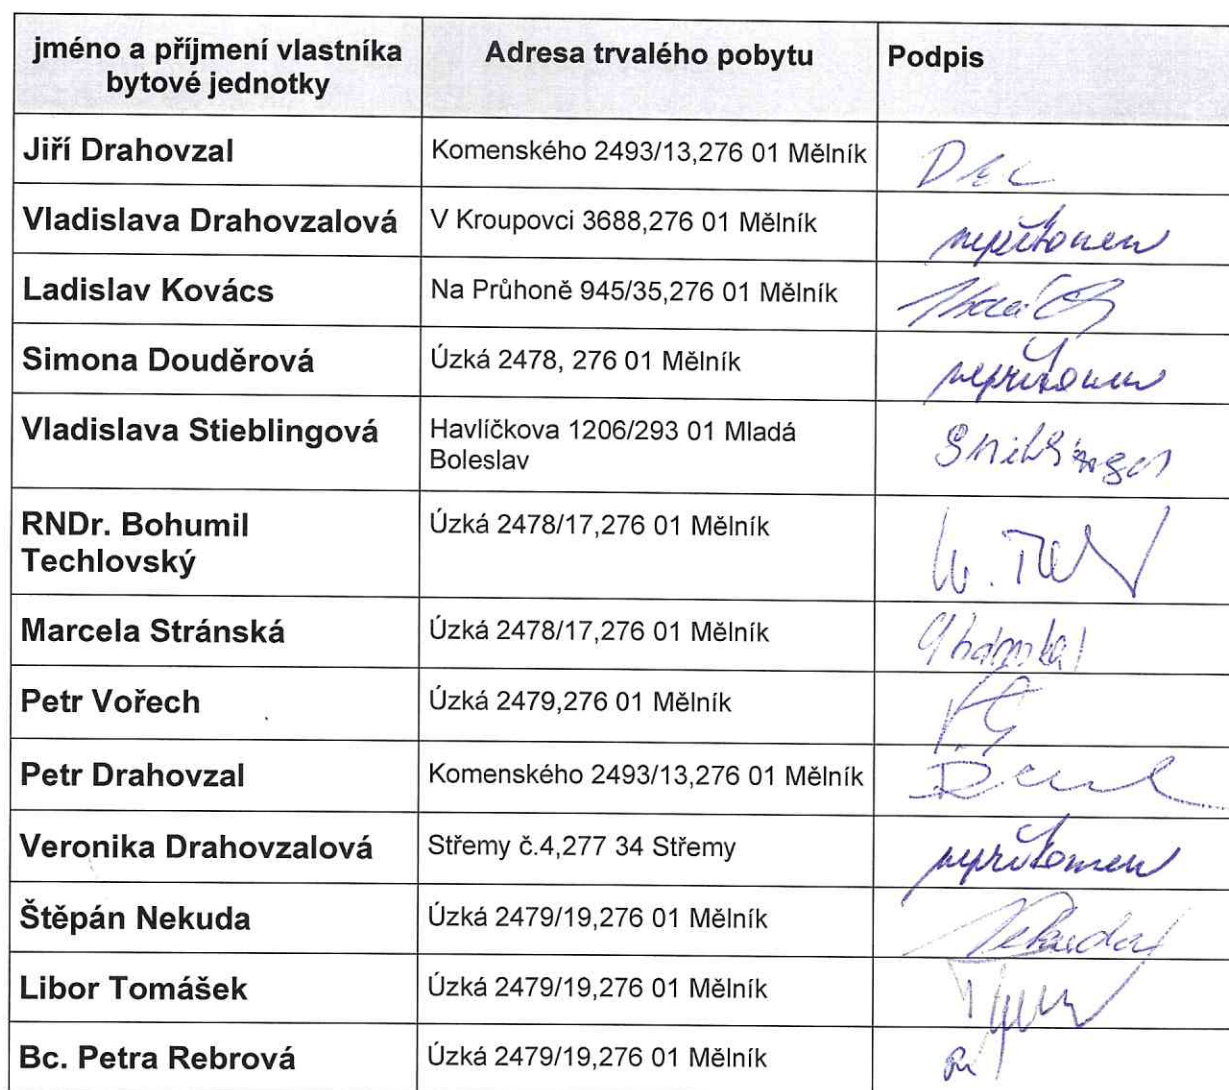 jméno a příjmení vlastníka
bytové jednotky
Adresa trvalého pobytu
Podpis
Jiří Drahovzal
Komenského 2493/13,276 01 Mělník
Vladislava Drahovzalová
V Kroupovci 3688,276 01 Mělník
nepřítomen
Ladislav Kovács
Na Průhoně 945/35,276 01 Mělník
Simona Douděrová
Úzká 2478, 276 01 Mělník
nepřítomen
Vladislava Stieblingová
Havlíčkova 1206/293 01 Mladá
Boleslav
RNDr. Bohumil
Techlovský
Úzká 2478/17,276 01 Mělník
Marcela Stránská
Úzká 2478/17,276 01 Mělník
Petr Vořech
Úzká 2479,276 01 Mělník
Petr Drahovzal
Komenského 2493/13,276 01 Mělník
Veronika Drahovzalová
Střemy č.4,277 34 Střemy
nepřítomen
Štěpán Nekuda
Úzká 2479/19,276 01 Mělník
Libor Tomášek
Úzká 2479/19,276 01 Mělník
Bc. Petra Rebrová
Úzká 2479/19,276 01 Mělník